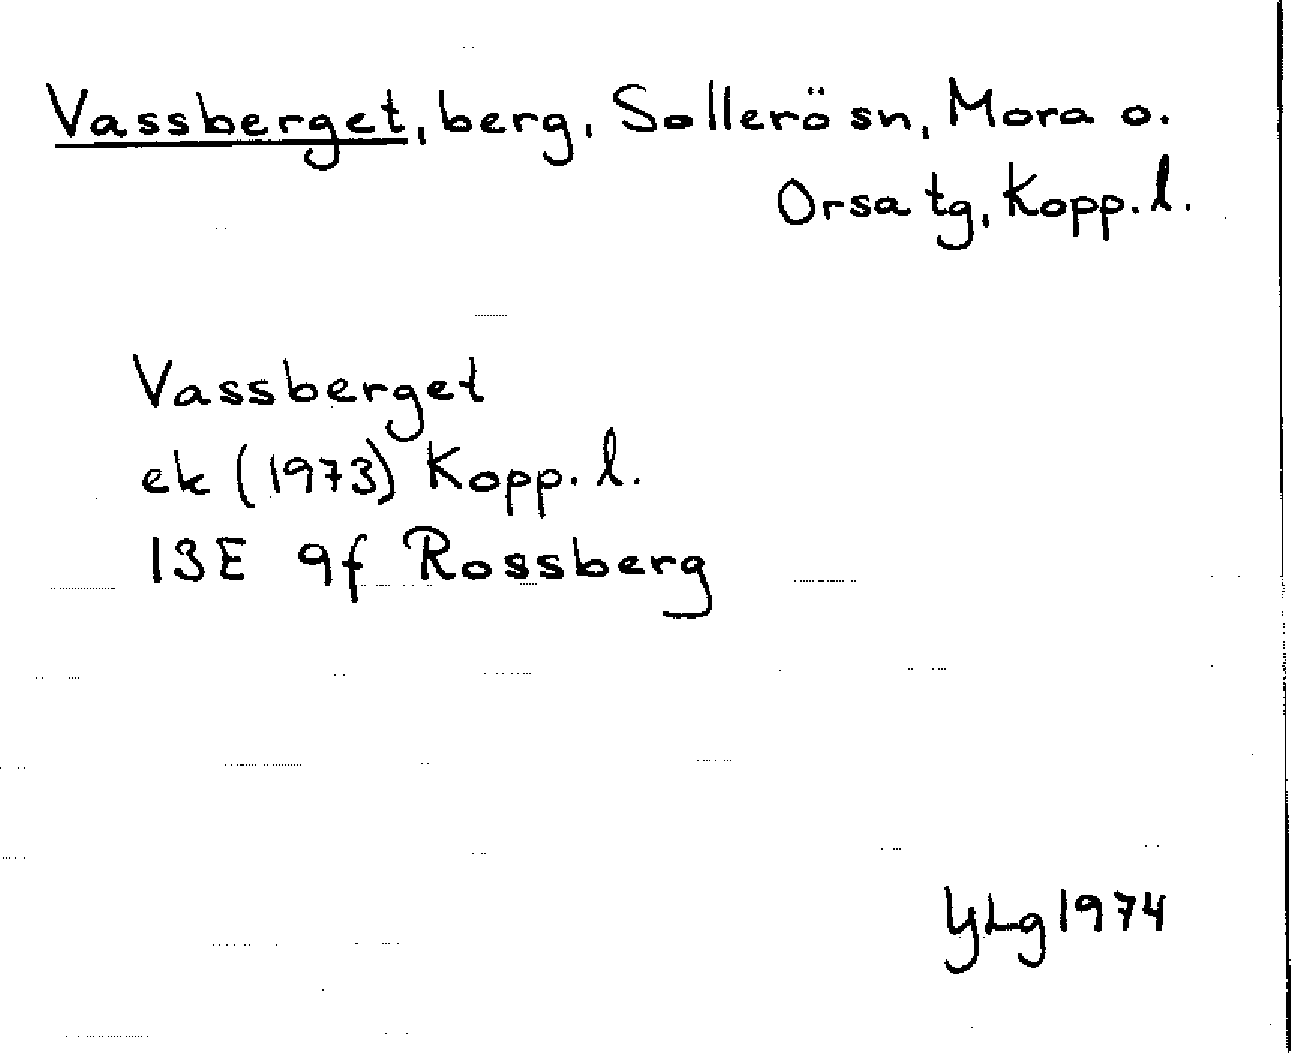 Vassberget, berg, Sollerö sn, Mora o.
Orsa tg, Kopp. l.
Vassberget
ek (1973) Kopp. l.
13E 9f Rossberg
YLg 1974